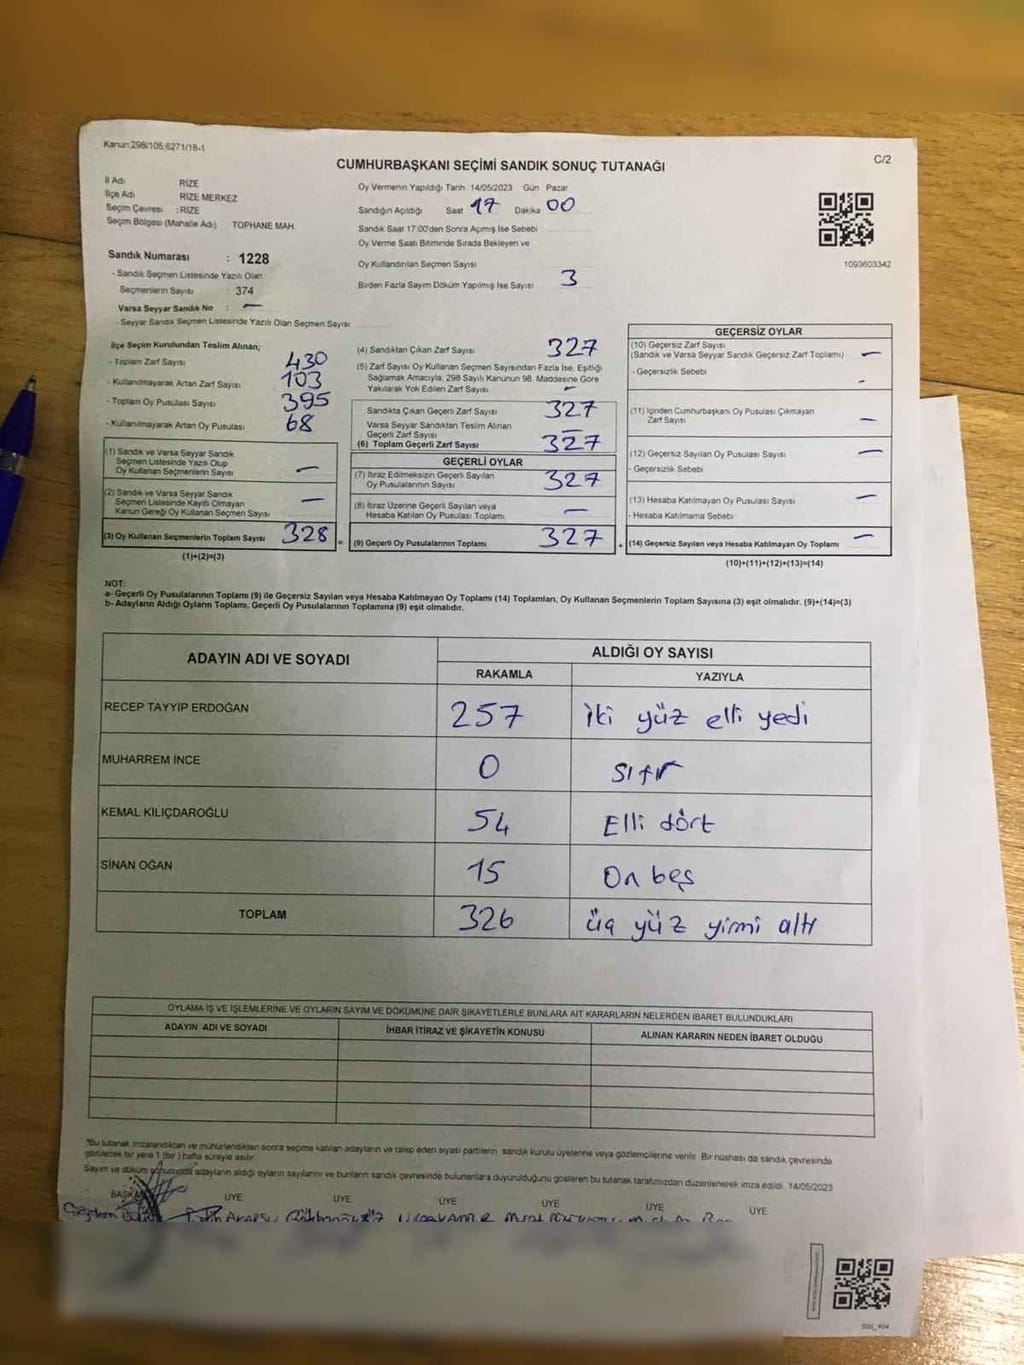 Kanun:298/105;6271/18-1
C/2
CUMHURBAŞKANI SEÇİMİ SANDIK SONUÇ TUTANAĞI
İl Adı RİZE
İlçe Adı RİZE MERKEZ
Seçim Çevresi : RİZE
Seçim Bölgesi (Mahalle Adı) TOPHANE MAH.
Sandık Numarası : 1228
- Sandık Seçmen Listesinde Yazılı Olan
Seçmenlerin Sayısı : 374
Varsa Seyyar Sandık No : —
- Seyyar Sandık Seçmen Listesinde Yazılı Olan Seçmen Sayısı
Oy Vermenin Yapıldığı Tarih 14/05/2023 Gün Pazar
Sandığın Açıldığı Saat 17 Dakika 00
Sandık Saat 17.00'den Sonra Açılmış İse Sebebi
Oy Verme Saati Bitiminde Sırada Bekleyen ve
Oy Kullandırılan Seçmen Sayısı
Birden Fazla Sayım Döküm Yapılmış İse Sayısı 3
1093603342
İlçe Seçim Kurulundan Teslim Alınan;
- Toplam Zarf Sayısı 430
- Kullanılmayarak Artan Zarf Sayısı 103
- Toplam Oy Pusulası Sayısı 395
- Kullanılmayarak Artan Oy Pusulası 68
(1) Sandık ve Varsa Seyyar Sandık
Seçmen Listesinde Yazılı Olup
Oy Kullanan Seçmenlerin Sayısı —
(2) Sandık ve Varsa Seyyar Sandık
Seçmen Listesinde Kayıtlı Olmayan
Kanun Gereği Oy Kullanan Seçmen Sayısı —
(3) Oy Kullanan Seçmenlerin Toplam Sayısı 328
(1)+(2)=(3)
(4) Sandıktan Çıkan Zarf Sayısı 327
(5) Zarf Sayısı Oy Kullanan Seçmen Sayısından Fazla İse, Eşitliği
Sağlamak Amacıyla, 298 Sayılı Kanunun 98. Maddesine Göre
Yakılarak Yok Edilen Zarf Sayısı —
Sandıkta Çıkan Geçerli Zarf Sayısı 327
Varsa Seyyar Sandıktan Teslim Alınan
Geçerli Zarf Sayısı —
(6) Toplam Geçerli Zarf Sayısı 327
GEÇERLİ OYLAR
(7) İtiraz Edilmeksizin Geçerli Sayılan
Oy Pusulalarının Sayısı 327
(8) İtiraz Üzerine Geçerli Sayılan veya
Hesaba Katılan Oy Pusulası Toplamı —
= (9) Geçerli Oy Pusulalarının Toplamı 327
GEÇERSİZ OYLAR
(10) Geçersiz Zarf Sayısı
(Sandık ve Varsa Seyyar Sandık Geçersiz Zarf Toplamı) —
- Geçersizlik Sebebi -
(11) İçinden Cumhurbaşkanı Oy Pusulası Çıkmayan
Zarf Sayısı —
(12) Geçersiz Sayılan Oy Pusulası Sayısı —
- Geçersizlik Sebebi
(13) Hesaba Katılmayan Oy Pusulası Sayısı —
- Hesaba Katılmama Sebebi
+ (14) Geçersiz Sayılan veya Hesaba Katılmayan Oy Toplamı —
(10)+(11)+(12)+(13)=(14)
NOT:
a- Geçerli Oy Pusulalarının Toplamı (9) ile Geçersiz Sayılan veya Hesaba Katılmayan Oy Toplamı (14) Toplamları, Oy Kullanan Seçmenlerin Toplam Sayısına (3) eşit olmalıdır. (9)+(14)=(3)
b- Adayların Aldığı Oyların Toplamı, Geçerli Oy Pusulalarının Toplamına (9) eşit olmalıdır.
ADAYIN ADI VE SOYADI ALDIĞI OY SAYISI
RAKAMLA YAZIYLA
RECEP TAYYİP ERDOĞAN 257 İki yüz elli yedi
MUHARREM İNCE 0 sıfır
KEMAL KILIÇDAROĞLU 54 Elli dört
SİNAN OĞAN 15 On beş
TOPLAM 326 üç yüz yirmi altı
OYLAMA İŞ VE İŞLEMLERİNE VE OYLARIN SAYIM VE DÖKÜMÜNE DAİR ŞİKAYETLERLE BUNLARA AİT KARARLARIN NELERDEN İBARET BULUNDUKLARI
ADAYIN ADI VE SOYADI İHBAR İTİRAZ VE ŞİKAYETİN KONUSU ALINAN KARARIN NEDEN İBARET OLDUĞU
*Bu tutanak imzalandıktan ve mühürlendikten sonra seçime katılan adayların ve talep eden siyasi partilerin sandık kurulu üyelerine veya gözlemcilerine verilir. Bir nüshası da sandık çevresinde
görülecek bir yere 1 (bir) hafta süreyle asılır.
Sayım ve döküm sonucunda adayların aldığı oyların sayılarını ve bunların sandık çevresinde bulunanlara duyurulduğunu gösteren bu tutanak tarafımızdan düzenlenerek imza edildi. 14/05/2023
BAŞKAN ÜYE ÜYE ÜYE ÜYE ÜYE ÜYE